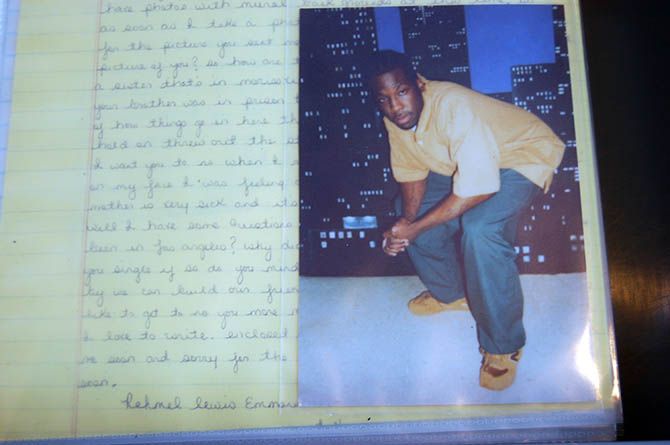 have photos with mural back grounds at this time. so
as soon as I take a phot
for the picture you sent me
picture of you? so how are t
a sister that's in
your brother was in prison t
of how things go in here th
hold on threw out the st
I want you to no when I s
on my face I was feeling
mother is very sick and its
will I have some questions
been in Los angeles? Why di
you single if so do you mind
try we can build our frien
like to get to no you more
I love to write. enclosed
me soon and sorry for the
soon.
Rahmel Lewis Emmans